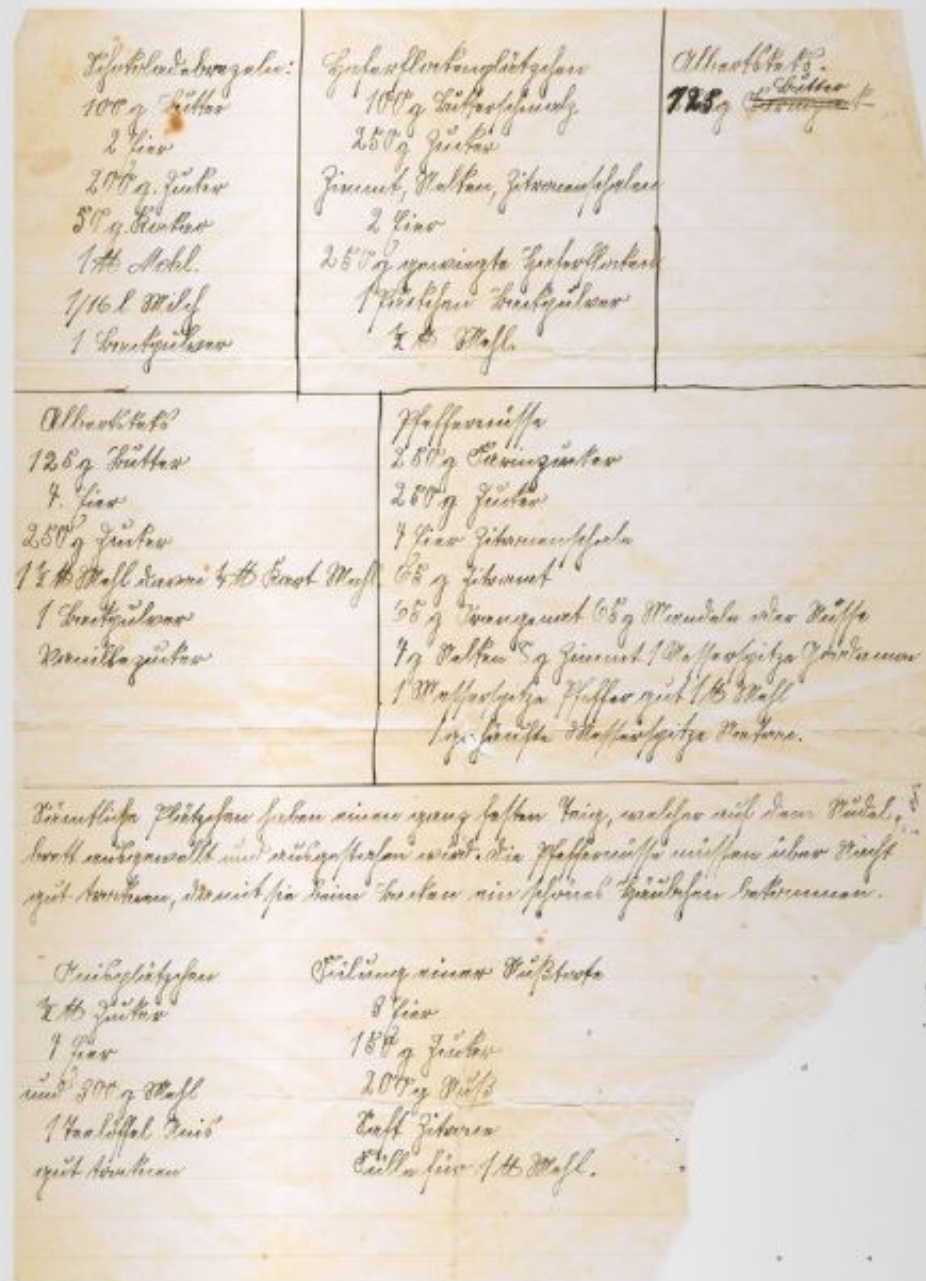 Schokoladebrezeln:
100 g Butter
2 Eier
200 g. Zucker
50 g. Kakao
1 ℔ Mehl.
1/16 l Milch
1 Backpulver
Haferflockenplätzchen
100 g Butterschmalz
250 g Zucker
Zimmt, Nelken, Zitronenschalen
2 Eier
250 g gewiegte Haferflocken
1 Päckchen Backpulver
½ ℔ Mehl.
Albertskeks.
Butter
125 g
Albertskeks
125 g Butter
4. Eier
250 g Zucker
1 ½ ℔ Mehl davon ¼ ℔ Kart Mehl
1 Backpulver
Vanillezucker
Pfeffernüsse
250 g Farinzucker
250 g Zucker
4 Eier Zitronenschale
65 g Zitronat
65 g Orangenat 65 g Mandeln oder Nüsse
4 g Nelken 5 g Zimmt 1 Messerspitze
1 Messerspitze Pfeffer gut 1 ℔ Mehl
1 gehäufte Messerspitze Natron.
Sämtliche Plätzchen haben einen ganz festen Teig, welcher auf dem Nudel-
brett ausgewellt und ausgestochen wird. Die Pfeffernüsse müssen über Nacht
gut trocknen, damit sie beim Backen ein schönes Häubchen bekommen.
Anisplätzchen
½ ℔ Zucker
4 Eier
und 300 g Mehl
1 Teelöffel Anis
gut trocknen
Fülung einer Nußtorte
3 Eier
150 g Zucker
200 g Nuß
Saft Zitrone
Fülle für 1 ℔ Mehl.